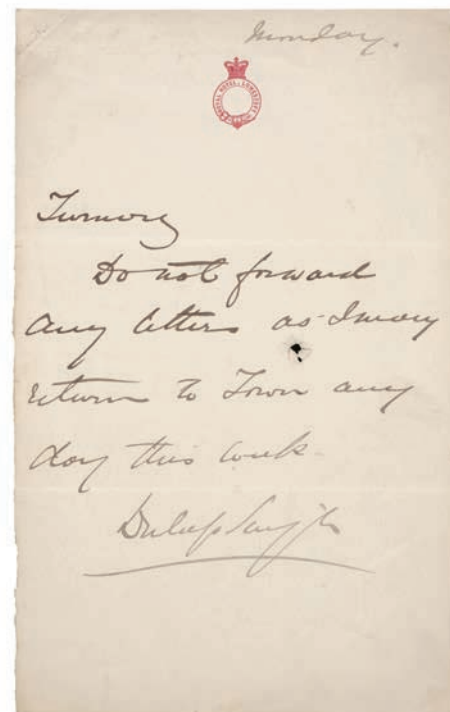 Monday.
ROYAL HOTEL LOWESTOFT
Do not forward
any letters as I may
return to Town any
day this week.
Duleep Singh